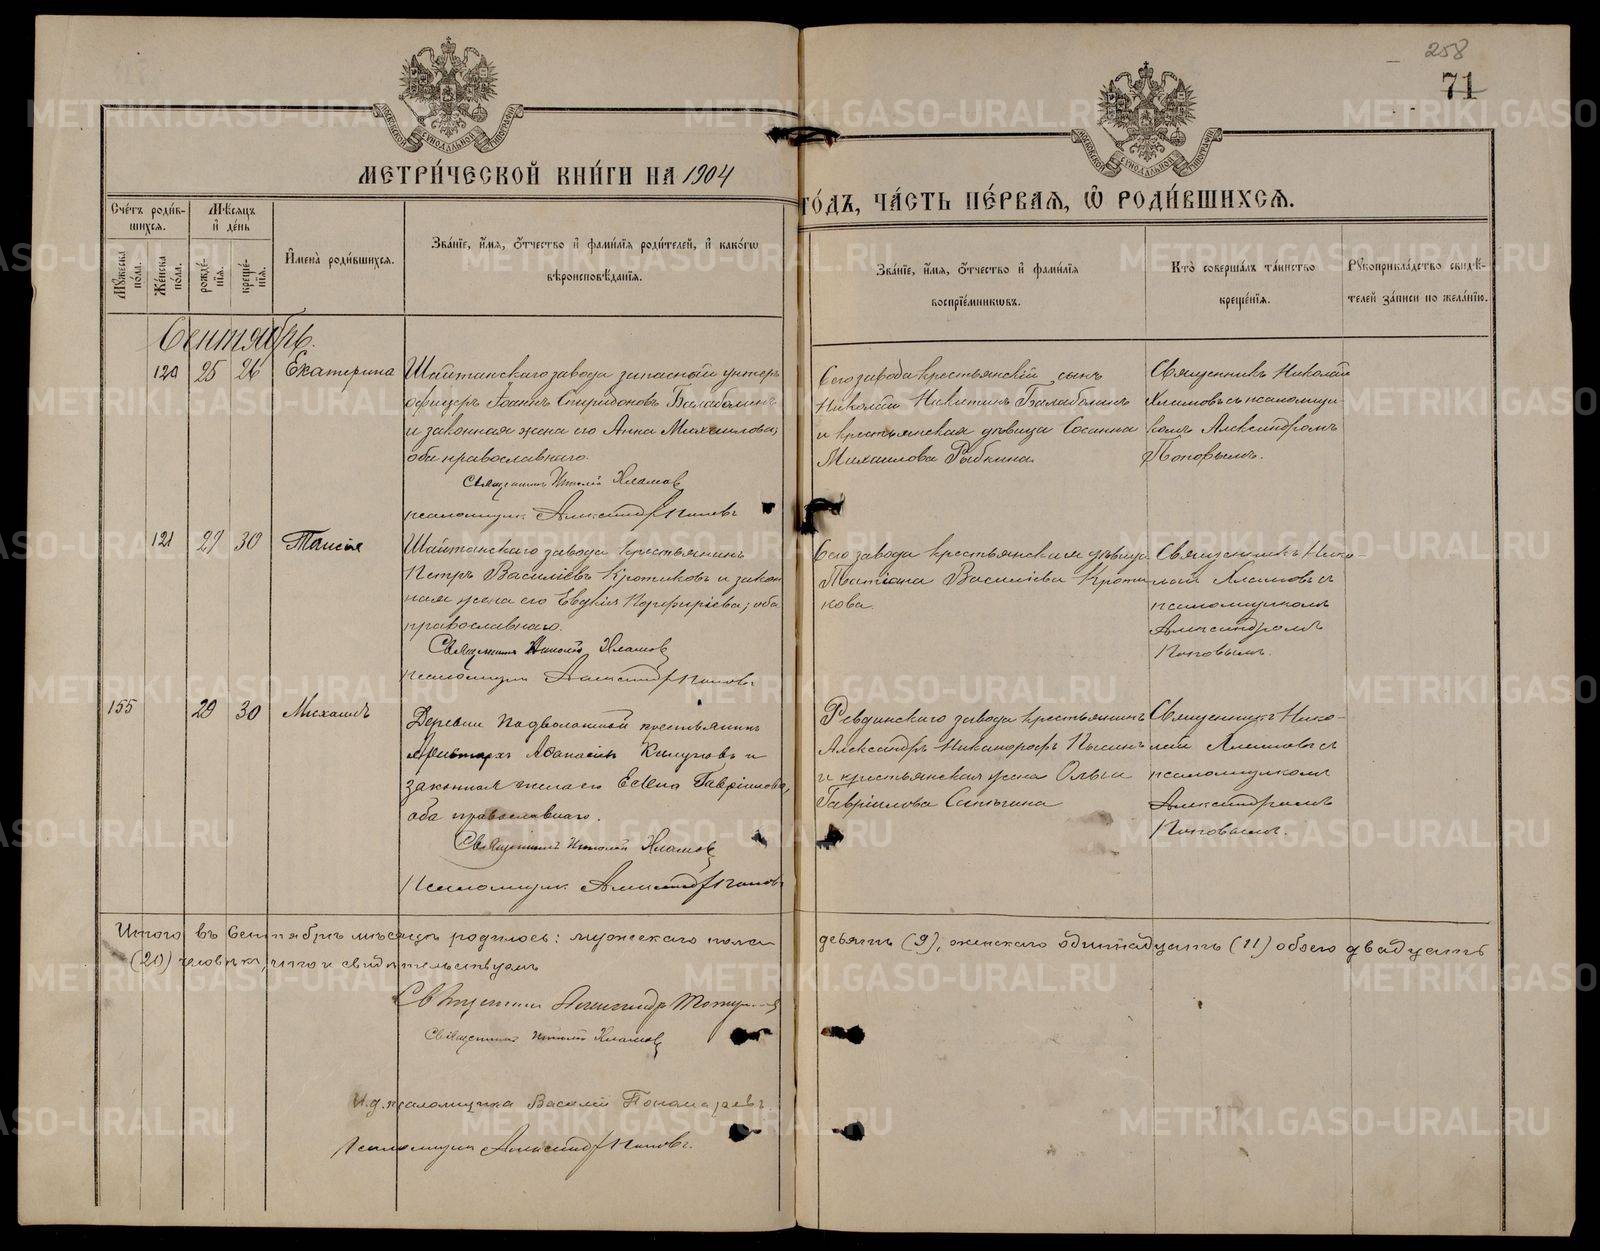 258
71
МОСКОВСКОЙ СѴНОДАЛЬНОЙ ТИПОГРАФІИ
МОСКОВСКОЙ СѴНОДАЛЬНОЙ ТИПОГРАФІИ
МЕТРИ́ЧЕСКОЙ КНИ́ГИ НА 1904
ГО́ДЪ, ЧА́СТЬ ПЕ́РВАЯ, Ѡ РОДИ́ВШИХСЯ.
Сче́тъ роди́в-
шихся.
Мꙋжеска пола.
Женска пола.
Мѣ́сяцъ
и де́нь
рожде́-
нїя.
креще́-
нїя.
И҆мена̀ роди́вшихся.
Зва́нїе, и҆́мя, ѻ҆́тчество и҆ фами́лїя роди́телей, и҆ како́гѡ
вѣроисповѣ́данїя.
Зва́нїе, и҆́мя, ѻ҆́тчество и҆ фами́лїя
воспрїе́мникѡвъ.
Кто̀ соверша́лъ та́инство
креще́нїя.
Рꙋкоприкла́дство свидѣ́-
телей за́писи по жела́нїю.
Сентябрь.
120 25 26 Екатерина
Шайтанскаго завода запасный унтеръ
офицеръ Іоаннъ Спиридоновъ Балабалинъ
и законная жена его Анна Михаилова;
оба православнаго.
Священникъ Николай Хламов
псаломщик Александръ Поповъ
Сего завода крестьянскій сынъ
Николай Никитинъ Балабалинъ
и крестьянская дѣвица Сосанна
Михаилова Рыбкина.
Священникъ Николай
Хламовъ съ псаломщи-
комъ Александромъ
Поповымъ.
121 29 30 Таисія
Шайтанскаго завода крестьянинъ
Петръ Василіевъ Кротиковъ и закон
ная жена его Евдокія Порфиріева; оба
православнаго.
Священникъ Николай Хламов
псаломщик Александръ Поповъ
Сего завода крестьянская дѣвица
Татіана Василіева Кроти-
кова.
Священникъ Нико-
лай Хламовъ съ
псаломщикомъ
Александромъ
Поповымъ.
155 29 30 Михаилъ
Деревни Подволошной крестьянинъ
Аристархъ Афанасіевъ и
законная жена его Елена Гавріилова,
оба православнаго.
Священникъ Николай Хламов
Псаломщик Александръ Поповъ
Ревдинскаго завода крестьянинъ
Александръ Никифоровъ
и крестьянская жена Ольга
Гавріилова
Священникъ Нико-
лай Хламовъ съ
псаломщикомъ
Александромъ
Поповымъ.
Итого въ Сентябрѣ мѣсяцѣ родилось: мужескаго пола девять (9), женскаго одиннадцать (11) обоего двадцать
(20) человѣкъ, что и свидѣтельствуемъ
Священникъ Александръ
Священникъ Николай Хламов
И.д. псаломщика Василій Пономаревъ.
Псаломщик Александръ Поповъ.
METRIKI.GASO-URAL.RU